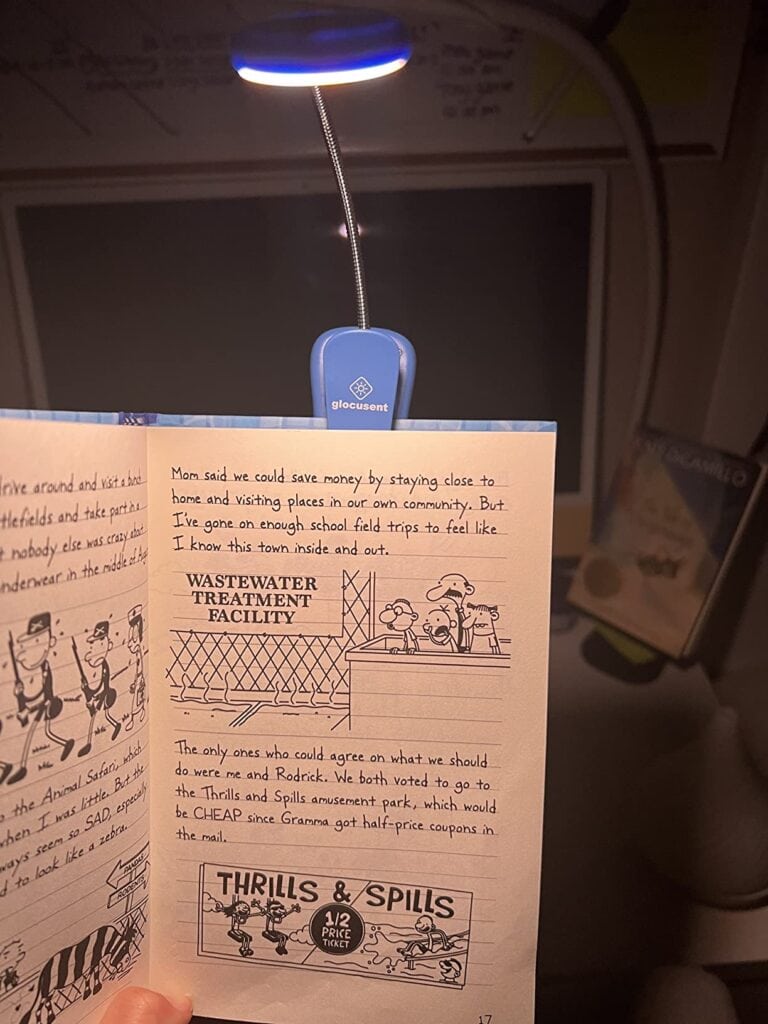 glocusent
drive around and visit a bunch
and take part in a
nobody else was crazy about
underwear in the middle of
the Animal Safari, which
when I was little. But the
seem so SAD, especially
to look like a zebra.
PANDAS
RODENTS
Mom said we could save money by staying close to
home and visiting places in our own community. But
I've gone on enough school field trips to feel like
I know this town inside and out.
WASTEWATER
TREATMENT
FACILITY
The only ones who could agree on what we should
do were me and Rodrick. We both voted to go to
the Thrills and Spills amusement park, which would
be CHEAP since Gramma got half-price coupons in
the mail.
THRILLS & SPILLS
1/2
PRICE
TICKET
17
DICAMILLO